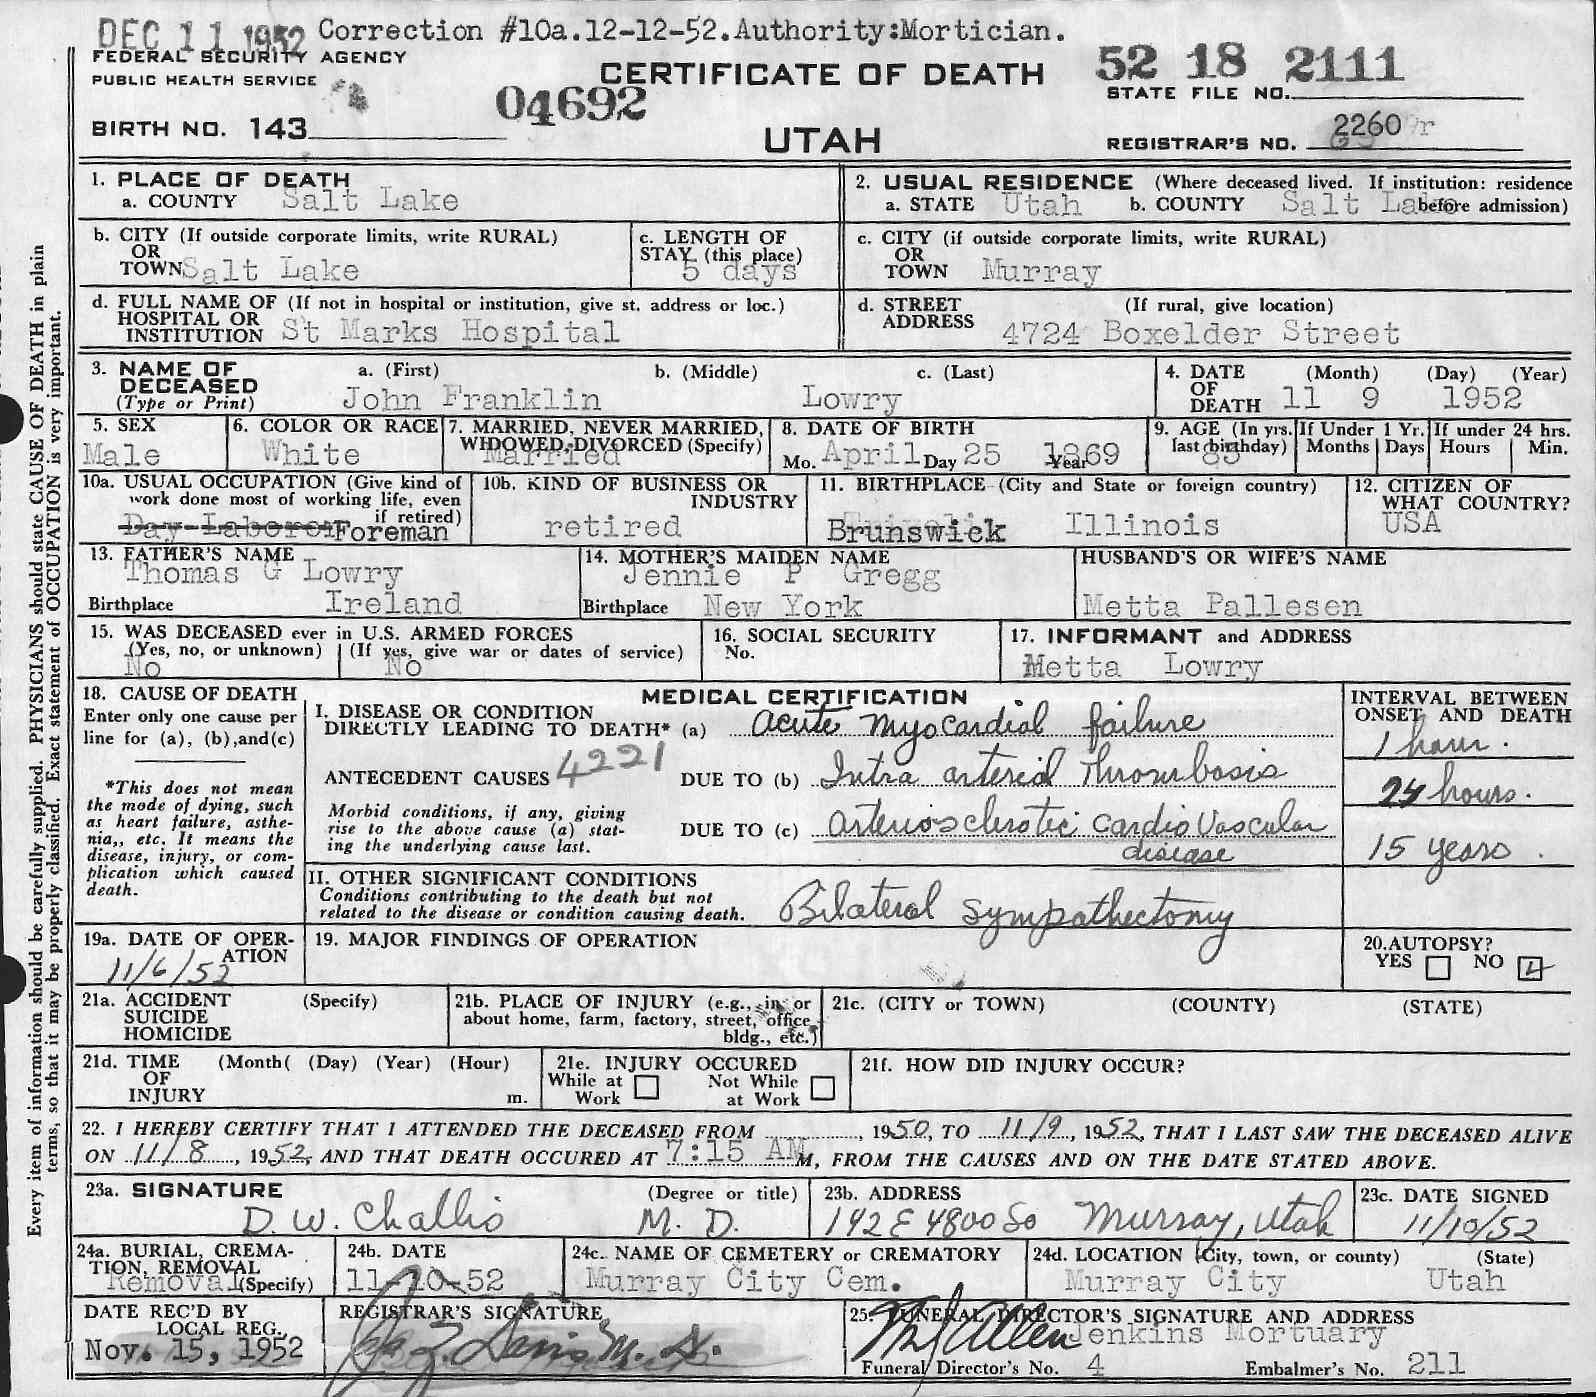 DEC 11 1952 Correction #10a.12-12-52.Authority:Mortician.
FEDERAL SECURITY AGENCY
PUBLIC HEALTH SERVICE
CERTIFICATE OF DEATH
52 18 2111
STATE FILE NO.
04692
BIRTH NO. 143
UTAH
REGISTRAR'S NO. 2260
Every item of information should be carefully supplied. PHYSICIANS should state CAUSE OF DEATH in plain
terms, so that it may be properly classified. Exact statement of OCCUPATION is very important.
1. PLACE OF DEATH
a. COUNTY Salt Lake
2. USUAL RESIDENCE (Where deceased lived. If institution: residence
before admission)
a. STATE Utah b. COUNTY Salt Lake
b. CITY (If outside corporate limits, write RURAL)
OR
TOWN Salt Lake
c. LENGTH OF
STAY (this place)
5 days
c. CITY (if outside corporate limits, write RURAL)
OR
TOWN Murray
d. FULL NAME OF (If not in hospital or institution, give st. address or loc.)
HOSPITAL OR
INSTITUTION St Marks Hospital
d. STREET (If rural, give location)
ADDRESS 4724 Boxelder Street
3. NAME OF a. (First) b. (Middle) c. (Last)
DECEASED
(Type or Print) John Franklin Lowry
4. DATE (Month) (Day) (Year)
OF
DEATH 11 9 1952
5. SEX
Male
6. COLOR OR RACE
White
7. MARRIED, NEVER MARRIED,
WIDOWED, DIVORCED (Specify)
Married
8. DATE OF BIRTH
Mo. April Day 25 Year 1869
9. AGE (In yrs.
last birthday)
83
If Under 1 Yr.
Months Days
If under 24 hrs.
Hours Min.
10a. USUAL OCCUPATION (Give kind of
work done most of working life, even
if retired)
Day Laborer Foreman
10b. KIND OF BUSINESS OR
INDUSTRY
retired
11. BIRTHPLACE (City and State or foreign country)
Brunswick Illinois
12. CITIZEN OF
WHAT COUNTRY?
USA
13. FATHER'S NAME
Thomas G Lowry
Birthplace Ireland
14. MOTHER'S MAIDEN NAME
Jennie P Gregg
Birthplace New York
HUSBAND'S OR WIFE'S NAME
Metta Pallesen
15. WAS DECEASED ever in U.S. ARMED FORCES
(Yes, no, or unknown) (If yes, give war or dates of service)
No No
16. SOCIAL SECURITY
No.
17. INFORMANT and ADDRESS
Metta Lowry
18. CAUSE OF DEATH
Enter only one cause per
line for (a), (b),and(c)
*This does not mean
the mode of dying, such
as heart failure, asthe-
nia,, etc. It means the
disease, injury, or com-
plication which caused
death.
MEDICAL CERTIFICATION
I. DISEASE OR CONDITION
DIRECTLY LEADING TO DEATH* (a) Acute Myocardial failure
4221
ANTECEDENT CAUSES DUE TO (b) Intra arterial Thrombosis
Morbid conditions, if any, giving
rise to the above cause (a) stat-
ing the underlying cause last.
DUE TO (c) Arteriosclerotic CardioVascular
disease
INTERVAL BETWEEN
ONSET AND DEATH
1 hour.
24 hours.
15 years.
II. OTHER SIGNIFICANT CONDITIONS
Conditions contributing to the death but not
related to the disease or condition causing death.
Bilateral Sympathectomy
19a. DATE OF OPER-
ATION
11/6/52
19. MAJOR FINDINGS OF OPERATION
20.AUTOPSY?
YES NO
21a. ACCIDENT (Specify)
SUICIDE
HOMICIDE
21b. PLACE OF INJURY (e.g., in or
about home, farm, factory, street, office
bldg., etc.)
21c. (CITY or TOWN) (COUNTY) (STATE)
21d. TIME (Month( (Day) (Year) (Hour)
OF
INJURY m.
21e. INJURY OCCURED
While at Work Not While at Work
21f. HOW DID INJURY OCCUR?
22. I HEREBY CERTIFY THAT I ATTENDED THE DECEASED FROM , 1950, TO 11/9, 1952, THAT I LAST SAW THE DECEASED ALIVE
ON 11/8, 1952, AND THAT DEATH OCCURED AT 7:15 AM, FROM THE CAUSES AND ON THE DATE STATED ABOVE.
23a. SIGNATURE (Degree or title)
D.W. Challis M.D.
23b. ADDRESS
142 E 4800 So Murray, Utah
23c. DATE SIGNED
11/10/52
24a. BURIAL, CREMA-
TION, REMOVAL
Removal (Specify)
24b. DATE
11-10-52
24c. NAME OF CEMETERY or CREMATORY
Murray City Cem.
24d. LOCATION (City, town, or county) (State)
Murray City Utah
DATE REC'D BY
LOCAL REG.
Nov. 15, 1952
REGISTRAR'S SIGNATURE
M.D.
25. FUNERAL DIRECTOR'S SIGNATURE AND ADDRESS
Allen Jenkins Mortuary
Funeral Director's No. 4 Embalmer's No. 211